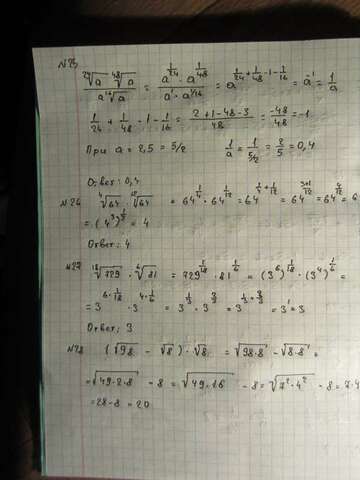 N25
²⁴√a · ⁴⁸√a / a ¹⁶√a = a^(1/24) · a^(1/48) / a¹ · a^(1/16) = a^(1/24 + 1/48 - 1 - 1/16) = a⁻¹ = 1/a
1/24 + 1/48 - 1 - 1/16 = (2+1-48-3)/48 = -48/48 = -1
При a = 2,5 = 5/2 1/a = 1/(5/2) = 2/5 = 0,4
Ответ: 0,4
N26 ⁴√64 · ¹²√64 = 64^(1/4) · 64^(1/12) = 64^(1/4 + 1/12) = 64^((3+1)/12) = 64^(4/12) = 6
= (4³)^(1/3) = 4
Ответ: 4
N27
¹⁸√729 · ⁶√81 = 729^(1/18) · 81^(1/6) = (3⁶)^(1/18) · (3⁴)^(1/6) =
= 3^(6·1/18) · 3^(4·1/6) = 3^(1/3) · 3^(2/3) = 3^(1/3 + 2/3) = 3¹ = 3
Ответ: 3
N28 (√98 - √8) · √8 = √98·8 - √8·8 =
= √49·2·8 - 8 = √49·16 - 8 = √7²·4² - 8 = 7·4
= 28 - 8 = 20